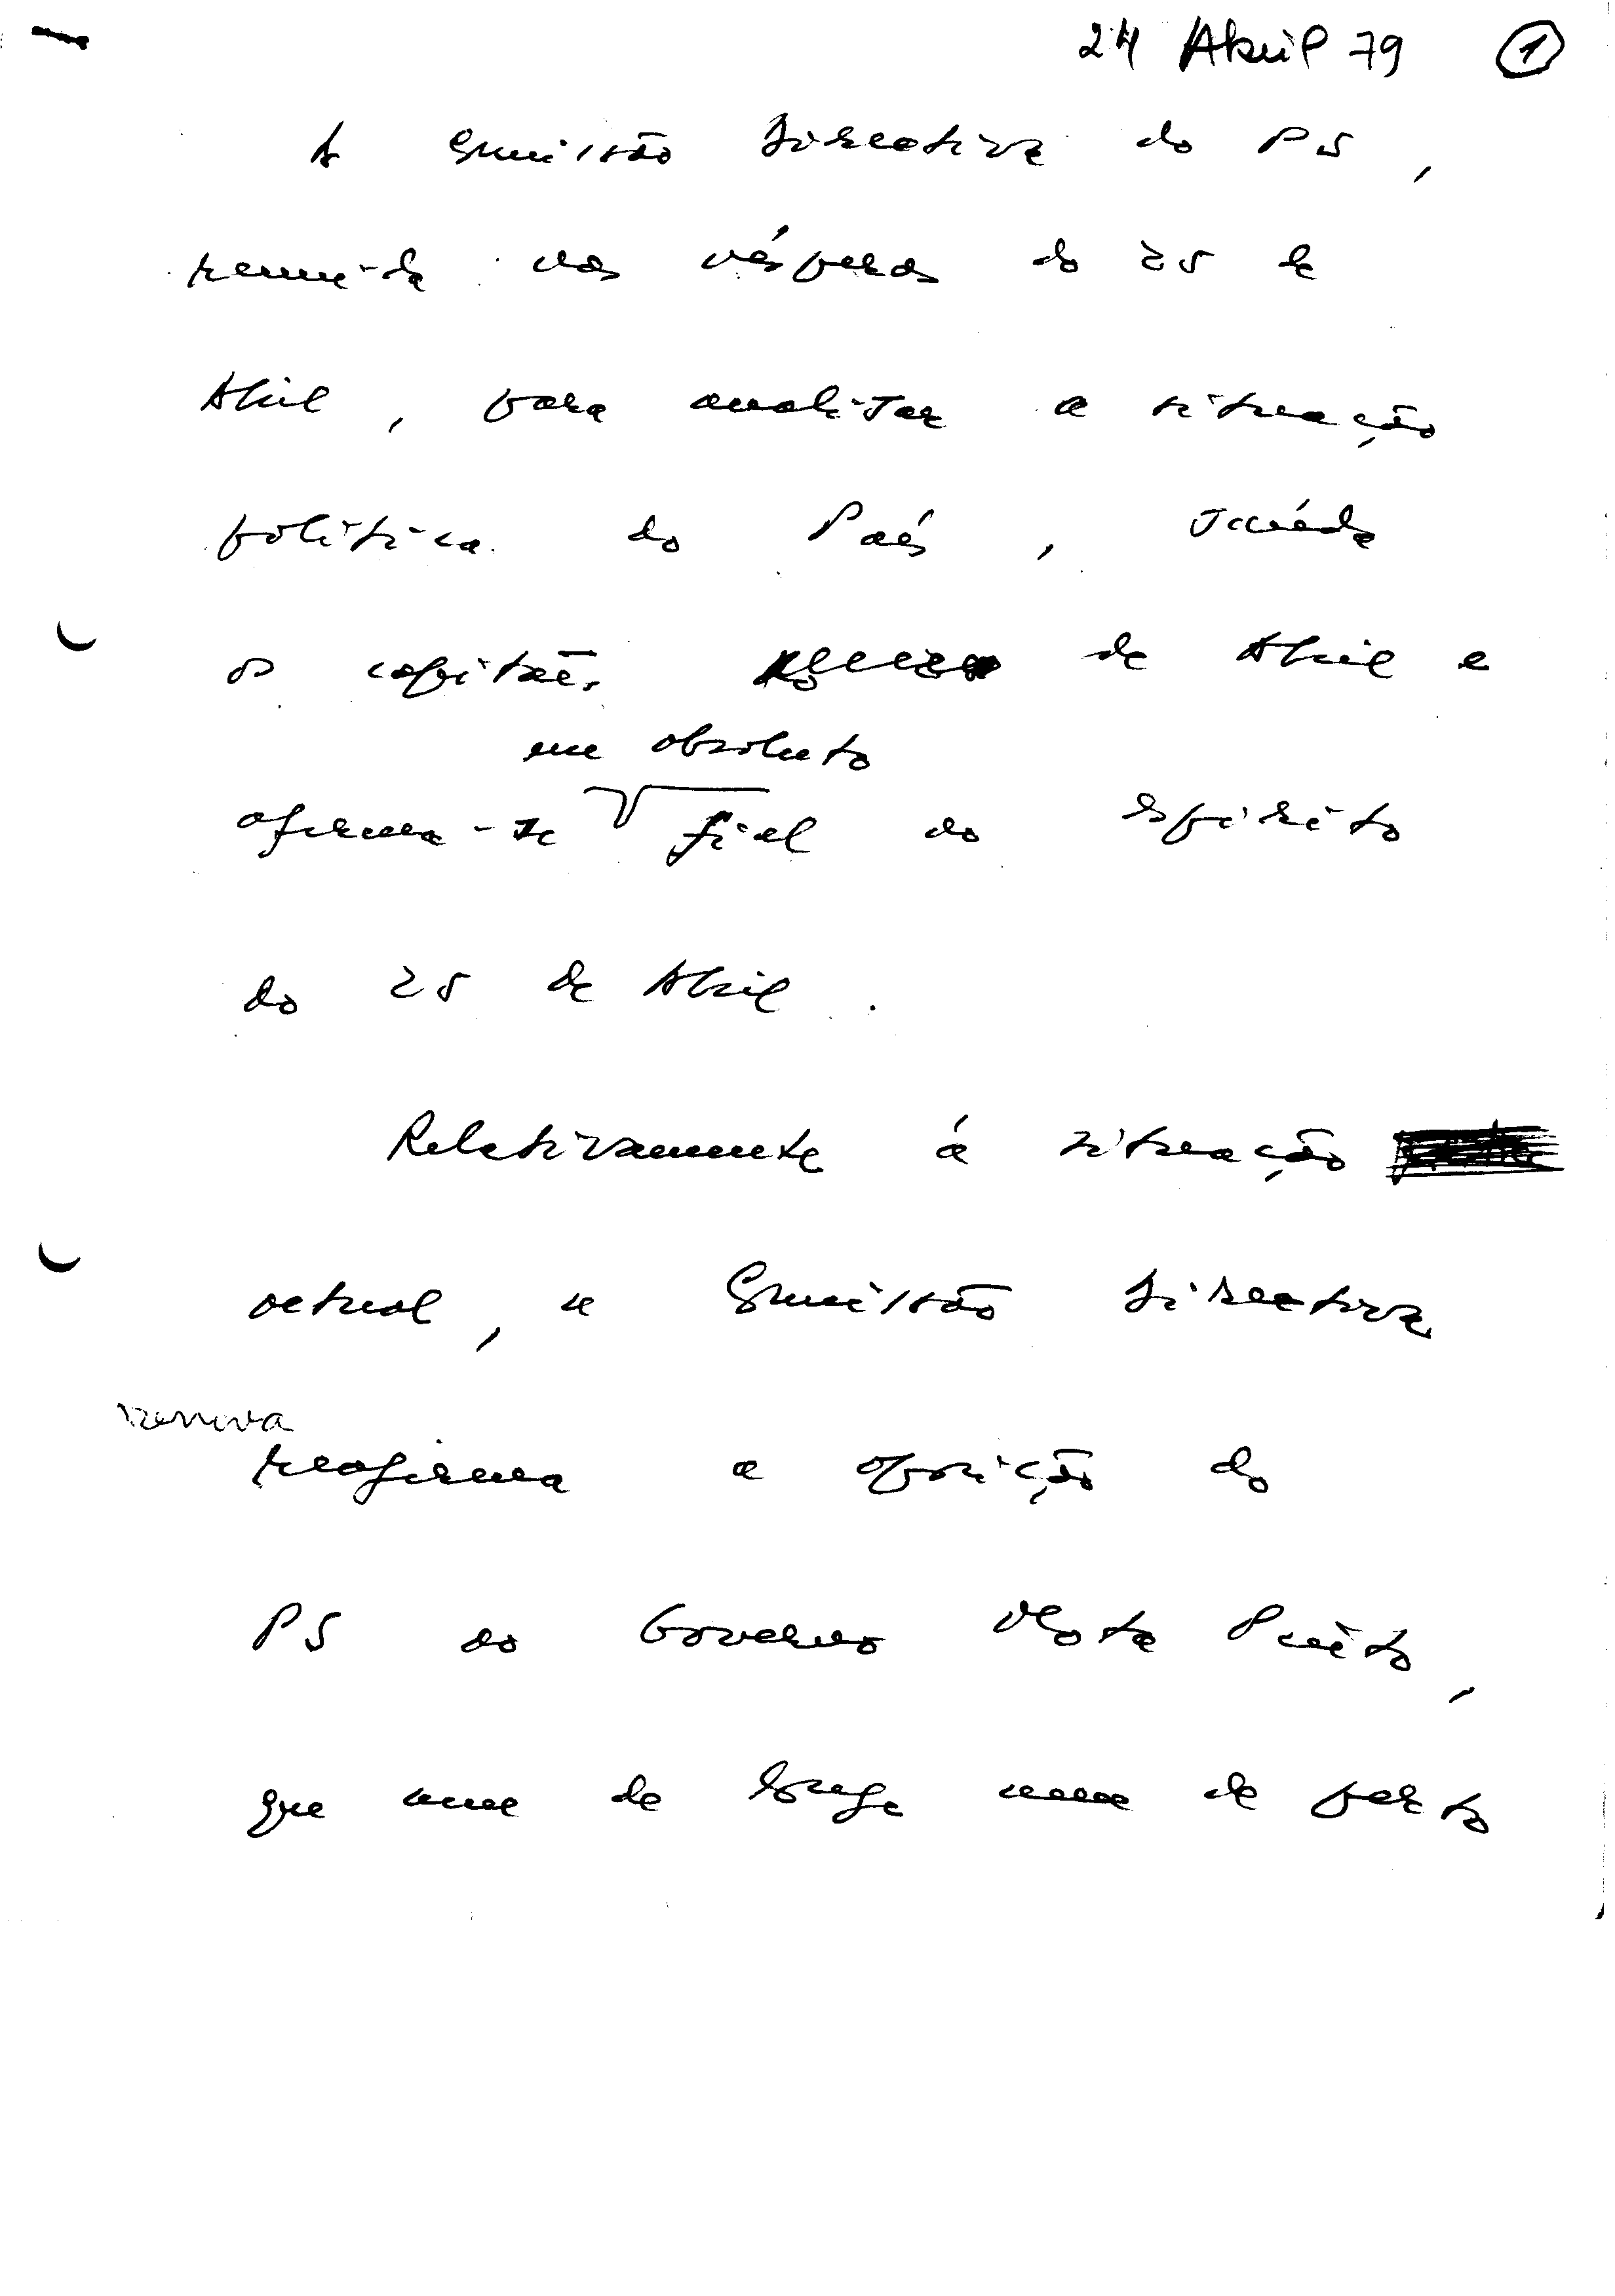 24 Abril 79 1
A Comissão Directiva do PS,
reunida nas vésperas do 25 de
Abril, para analisar a situação
política do País, saúda
os capitães de Abril e
em absoluto
afirma-se fiel ao espírito
do 25 de Abril.
Relativamente à situação
actual, a Comissão Directiva
renova
reafirma a oposição do
PS ao Governo Mota Pinto,
que nem de longe nem de perto